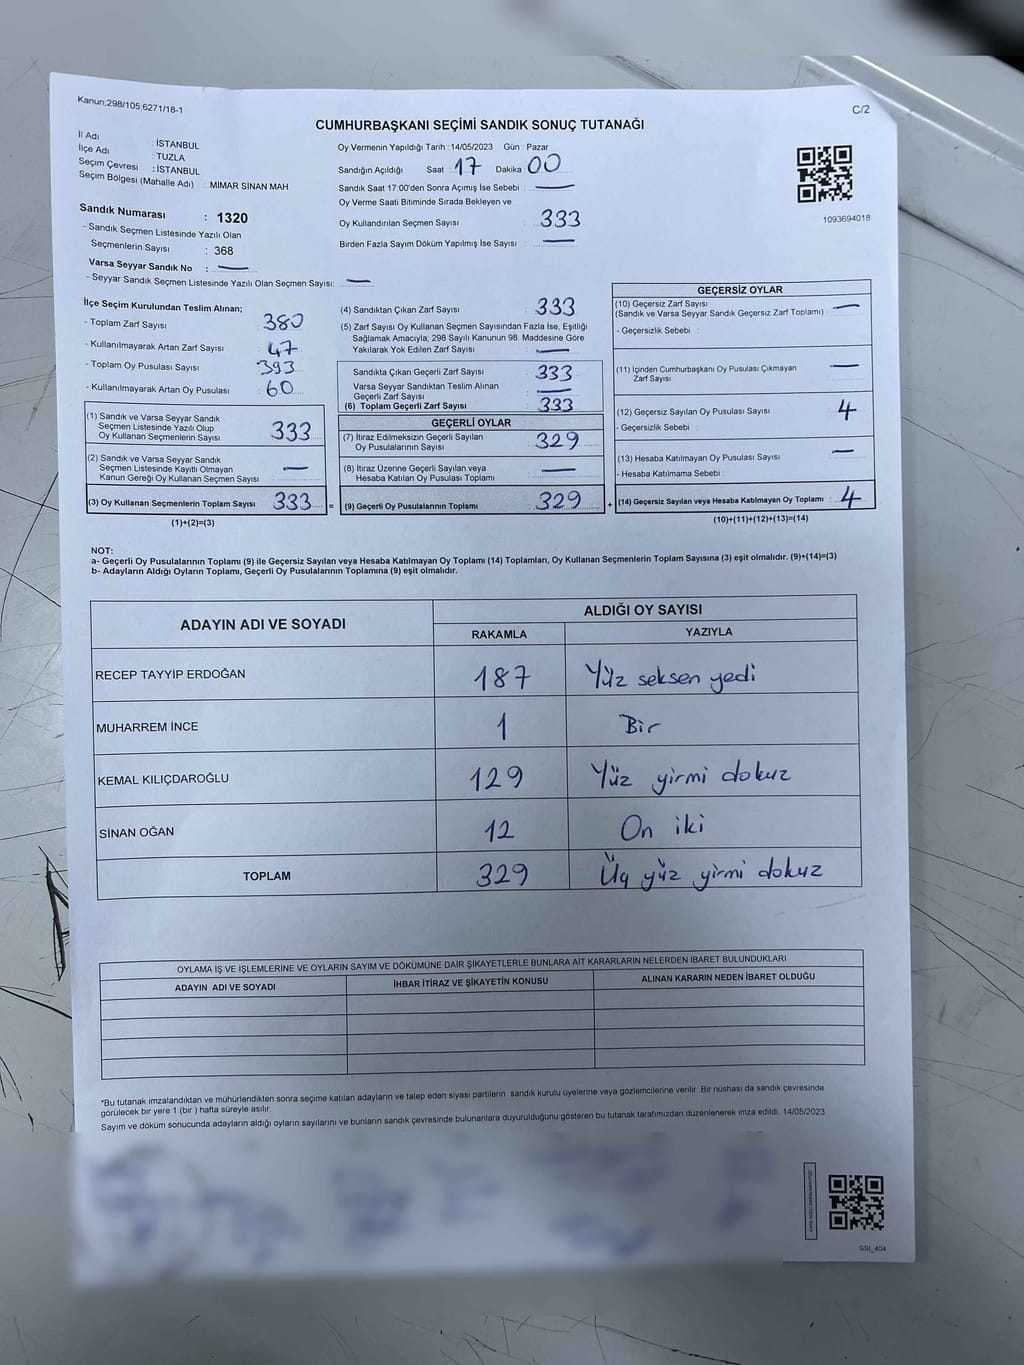 Kanun;298/105,6271/18-1
C/2
CUMHURBAŞKANI SEÇİMİ SANDIK SONUÇ TUTANAĞI
İl Adı : İSTANBUL
İlçe Adı : TUZLA
Seçim Çevresi : İSTANBUL
Seçim Bölgesi (Mahalle Adı) : MIMAR SİNAN MAH.
Sandık Numarası : 1320
- Sandık Seçmen Listesinde Yazılı Olan
Seçmenlerin Sayısı : 368
Varsa Seyyar Sandık No : —
- Seyyar Sandık Seçmen Listesinde Yazılı Olan Seçmen Sayısı: —
Oy Vermenin Yapıldığı Tarih : 14/05/2023 Gün : Pazar
Sandığın Açıldığı Saat : 17 Dakika : 00
Sandık Saat 17:00'den Sonra Açımış İse Sebebi : —
Oy Verme Saati Bitiminde Sırada Bekleyen ve
Oy Kullandırılan Seçmen Sayısı : 333
Birden Fazla Sayım Döküm Yapılmış İse Sayısı : —
1093694018
İlçe Seçim Kurulundan Teslim Alınan;
- Toplam Zarf Sayısı : 380
- Kullanılmayarak Artan Zarf Sayısı : 47
- Toplam Oy Pusulası Sayısı : 393
- Kullanılmayarak Artan Oy Pusulası : 60
(1) Sandık ve Varsa Seyyar Sandık
Seçmen Listesinde Yazılı Olup
Oy Kullanan Seçmenlerin Sayısı : 333
(2) Sandık ve Varsa Seyyar Sandık
Seçmen Listesinde Kayıtlı Olmayan
Kanun Gereği Oy Kullanan Seçmen Sayısı : —
(3) Oy Kullanan Seçmenlerin Toplam Sayısı : 333 =
(1)+(2)=(3)
(4) Sandıktan Çıkan Zarf Sayısı : 333
(5) Zarf Sayısı Oy Kullanan Seçmen Sayısından Fazla İse, Eşitliği
Sağlamak Amacıyla, 298 Sayılı Kanunun 98. Maddesine Göre
Yakılarak Yok Edilen Zarf Sayısı : —
Sandıkta Çıkan Geçerli Zarf Sayısı : 333
Varsa Seyyar Sandıktan Teslim Alınan
Geçerli Zarf Sayısı : —
(6) Toplam Geçerli Zarf Sayısı : 333
GEÇERLİ OYLAR
(7) İtiraz Edilmeksizin Geçerli Sayılan
Oy Pusulalarının Sayısı : 329
(8) İtiraz Üzerine Geçerli Sayılan veya
Hesaba Katılan Oy Pusulası Toplamı : —
(9) Geçerli Oy Pusulalarının Toplamı : 329 +
GEÇERSİZ OYLAR
(10) Geçersiz Zarf Sayısı : —
(Sandık ve Varsa Seyyar Sandık Geçersiz Zarf Toplamı)
- Geçersizlik Sebebi :
(11) İçinden Cumhurbaşkanı Oy Pusulası Çıkmayan
Zarf Sayısı : —
(12) Geçersiz Sayılan Oy Pusulası Sayısı : 4
- Geçersizlik Sebebi :
(13) Hesaba Katılmayan Oy Pusulası Sayısı : —
- Hesaba Katılmama Sebebi :
(14) Geçersiz Sayılan veya Hesaba Katılmayan Oy Toplamı : 4
(10)+(11)+(12)+(13)=(14)
NOT:
a- Geçerli Oy Pusulalarının Toplamı (9) ile Geçersiz Sayılan veya Hesaba Katılmayan Oy Toplamı (14) Toplamları, Oy Kullanan Seçmenlerin Toplam Sayısına (3) eşit olmalıdır. (9)+(14)=(3)
b- Adayların Aldığı Oyların Toplamı, Geçerli Oy Pusulalarının Toplamına (9) eşit olmalıdır.
ADAYIN ADI VE SOYADI ALDIĞI OY SAYISI
RAKAMLA YAZIYLA
RECEP TAYYİP ERDOĞAN 187 Yüz seksen yedi
MUHARREM İNCE 1 Bir
KEMAL KILIÇDAROĞLU 129 Yüz yirmi dokuz
SİNAN OĞAN 12 On iki
TOPLAM 329 Üç yüz yirmi dokuz
OYLAMA İŞ VE İŞLEMLERİNE VE OYLARIN SAYIM VE DÖKÜMÜNE DAİR ŞİKAYETLERLE BUNLARA AİT KARARLARIN NELERDEN İBARET BULUNDUKLARI
ADAYIN ADI VE SOYADI İHBAR İTİRAZ VE ŞİKAYETİN KONUSU ALINAN KARARIN NEDEN İBARET OLDUĞU
*Bu tutanak imzalandıktan ve mühürlendikten sonra seçime katılan adayların ve talep eden siyasi partilerin sandık kurulu üyelerine veya gözlemcilerine verilir. Bir nüshası da sandık çevresinde
görülecek bir yere 1 (bir ) hafta süreyle asılır.
Sayım ve döküm sonucunda adayların aldığı oyların sayılarını ve bunların sandık çevresinde bulunanlara duyurulduğunu gösteren bu tutanak tarafımızdan düzenlenerek imza edildi. 14/05/2023
SSI_404